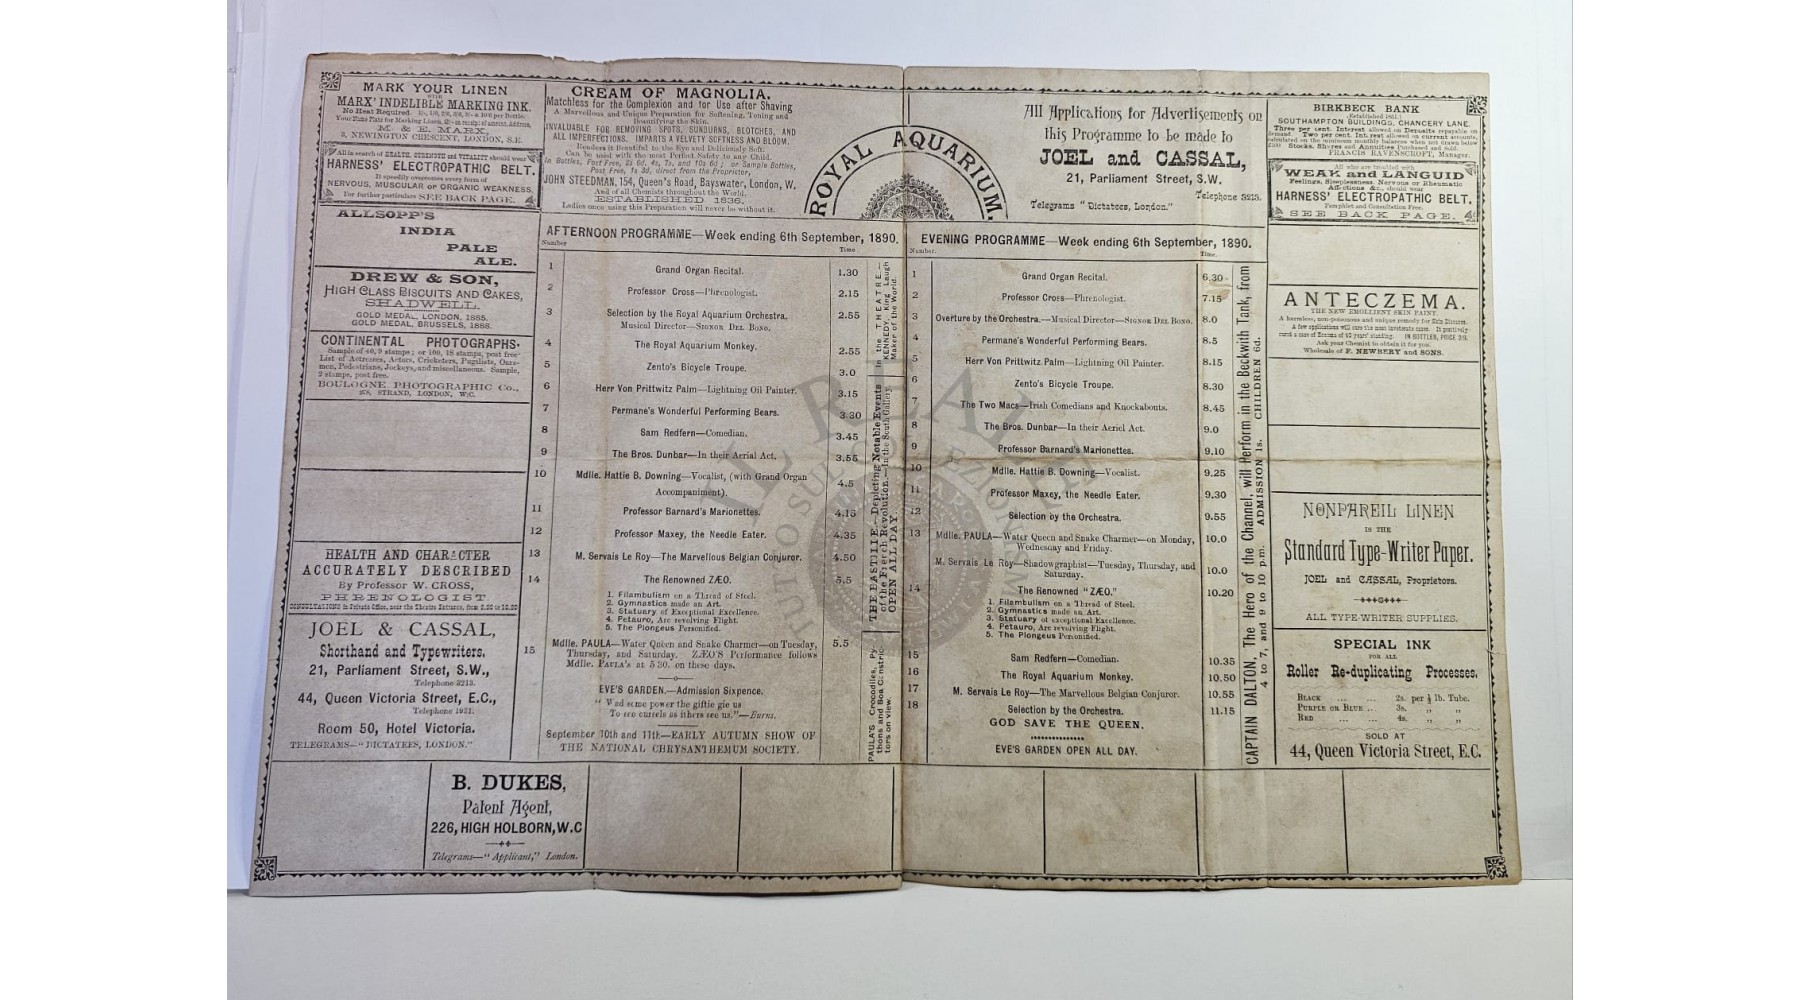 MARK YOUR LINEN
WITH
MARX' INDELIBLE MARKING INK.
No Heat Required.
M. & E. MARX,
3, NEWINGTON CRESCENT, LONDON, S.E.
All in search of HEALTH, STRENGTH and VITALITY should wear
HARNESS' ELECTROPATHIC BELT.
It speedily overcomes every form of
NERVOUS, MUSCULAR or ORGANIC WEAKNESS.
For further particulars SEE BACK PAGE.
ALLSOPP'S
INDIA
PALE
ALE.
DREW & SON,
HIGH CLASS BISCUITS AND CAKES,
SHADWELL.
GOLD MEDAL, LONDON, 1885.
GOLD MEDAL, BRUSSELS, 1888.
CONTINENTAL PHOTOGRAPHS.
Sample of 40, 9 stamps; or 100, 18 stamps, post free
List of Actresses, Actors, Cricketers, Pugilists, Oars-
men, Pedestrians, Jockeys, and miscellaneous. Sample,
2 stamps, post free.
BOULOGNE PHOTOGRAPHIC Co.,
STRAND, LONDON, W.C.
HEALTH AND CHARACTER
ACCURATELY DESCRIBED
By Professor W. CROSS,
PHRENOLOGIST.
CONSULTATIONS in Private Office, near the Theatre Entrance, from
JOEL & CASSAL,
Shorthand and Typewriters,
21, Parliament Street, S.W.,
Telephone 3213.
44, Queen Victoria Street, E.C.,
Telephone 1921.
Room 50, Hotel Victoria.
TELEGRAMS—"DICTATEES, LONDON."
CREAM OF MAGNOLIA.
Matchless for the Complexion and for Use after Shaving
A Marvellous and Unique Preparation for Softening, Toning and
Beautifying the Skin.
INVALUABLE FOR REMOVING SPOTS, SUNBURNS, BLOTCHES, AND
ALL IMPERFECTIONS. IMPARTS A VELVETY SOFTNESS AND BLOOM.
Renders it Beautiful to the Eye and Deliciously Soft.
Can be used with the most Perfect Safety to any Child.
In Bottles, Post Free, 2s 6d, 4s, 7s, and 10s 6d; or Sample Bottles,
Post Free, 1s 3d, direct from the Proprietor,
JOHN STEEDMAN, 154, Queen's Road, Bayswater, London, W.
And of all Chemists throughout the World.
ESTABLISHED 1836.
Ladies once using this Preparation will never be without it.
ROYAL AQUARIUM.
All Applications for Advertisements on
this Programme to be made to
JOEL and CASSAL,
21, Parliament Street, S.W.
Telephone 3213.
Telegrams "Dictatees, London."
BIRKBECK BANK
Established 1851.
SOUTHAMPTON BUILDINGS, CHANCERY LANE.
Three per cent. Interest allowed on Deposits repayable on
demand. Two per cent. Interest allowed on current accounts,
calculated on the minimum monthly balances when not drawn below
£100 Stocks, Shares and Annuities Purchased and Sold.
FRANCIS RAVENSCROFT, Manager.
All who are troubled with
WEAK and LANGUID
Feelings, Sleeplessness, Nervous or Rheumatic
Affections &c., should wear
HARNESS' ELECTROPATHIC BELT.
Pamphlet and Consultation Free.
SEE BACK PAGE.
AFTERNOON PROGRAMME—Week ending 6th September, 1890.
Number Time
1 Grand Organ Recital. 1.30
2 Professor Cross—Phrenologist. 2.15
3 Selection by the Royal Aquarium Orchestra. 2.55
Musical Director—SIGNOR DEL BONO.
4 The Royal Aquarium Monkey. 2.55
5 Zento's Bicycle Troupe. 3.0
6 Herr Von Prittwitz Palm—Lightning Oil Painter. 3.15
7 Permane's Wonderful Performing Bears. 3.30
8 Sam Redfern—Comedian. 3.45
9 The Bros. Dunbar—In their Aerial Act. 3.55
10 Mdlle. Hattie B. Downing—Vocalist, (with Grand Organ
Accompaniment). 4.5
11 Professor Barnard's Marionettes. 4.15
12 Professor Maxey, the Needle Eater. 4.35
13 M. Servais Le Roy—The Marvellous Belgian Conjuror. 4.50
14 The Renowned ZÆO. 5.5
1. Filambulism on a Thread of Steel.
2. Gymnastics made an Art.
3. Statuary of Exceptional Excellence.
4. Petauro, Arc revolving Flight.
5. The Plongeus Personified.
15 Mdlle. PAULA—Water Queen and Snake Charmer—on Tuesday, 5.5
Thursday, and Saturday. ZÆO'S Performance follows
Mdlle. PAULA'S at 5 30. on these days.
EVE'S GARDEN.—Admission Sixpence.
"Wad some power the giftie gie us
To see oursels as ithers see us."—Burns.
September 10th and 11th—EARLY AUTUMN SHOW OF
THE NATIONAL CHRYSANTHEMUM SOCIETY.
In the THEATRE.—
KENNEDY, King Laugh
Maker of the World.
THE BASTILLE.—Depicting Notable Events
of the French Revolution.—In the South Gallery.
OPEN ALL DAY.
PAULA'S Crocodiles, Py-
thons and Boa Constric-
tors on view.
EVENING PROGRAMME—Week ending 6th September, 1890.
Number. Time.
1 Grand Organ Recital. 6.30
2 Professor Cross—Phrenologist. 7.15
3 Overture by the Orchestra.—Musical Director—SIGNOR DEL BONO. 8.0
4 Permane's Wonderful Performing Bears. 8.5
5 Herr Von Prittwitz Palm—Lightning Oil Painter. 8.15
6 Zento's Bicycle Troupe. 8.30
7 The Two Macs—Irish Comedians and Knockabouts. 8.45
8 The Bros. Dunbar—In their Aeriel Act. 9.0
9 Professor Barnard's Marionettes. 9.10
10 Mdlle. Hattie B. Downing—Vocalist. 9.25
11 Professor Maxey, the Needle Eater. 9.30
12 Selection by the Orchestra. 9.55
13 Mdlle. PAULA—Water Queen and Snake Charmer—on Monday, 10.0
Wednesday and Friday.
M. Servais Le Roy—Shadowgraphist—Tuesday, Thursday, and
Saturday. 10.0
14 The Renowned "ZÆO." 10.20
1. Filambulism on a Thread of Steel.
2. Gymnastics made an Art.
3. Statuary of exceptional Excellence.
4. Petauro, Arc revolving Flight.
5. The Plongeus Personified.
15 Sam Redfern—Comedian. 10.35
16 The Royal Aquarium Monkey. 10.50
17 M. Servais Le Roy—The Marvellous Belgian Conjuror. 10.55
18 Selection by the Orchestra. 11.15
GOD SAVE THE QUEEN.
EVE'S GARDEN OPEN ALL DAY.
CAPTAIN DALTON, The Hero of the Channel, will Perform in the Beckwith Tank, from
4 to 7, and 9 to 10 p.m. ADMISSION 1s. CHILDREN 6d.
ANTECZEMA.
THE NEW EMOLLIENT SKIN PAINT.
A harmless, non-poisonous and unique remedy for Skin Diseases.
A few applications will cure the most inveterate cases. It positively
cured a case of Eczema of 45 years' standing. IN BOTTLES, PRICE 2/9.
Ask your Chemist to obtain it for you.
Wholesale of F. NEWBERY and SONS.
NONPAREIL LINEN
IS THE
Standard Type-Writer Paper.
JOEL and CASSAL, Proprietors.
ALL TYPE-WRITER SUPPLIES.
SPECIAL INK
FOR ALL
Roller Re-duplicating Processes.
BLACK ... ... 2s. per ½ lb. Tube.
PURPLE OR BLUE ... 3s. " "
RED ... ... 4s. " "
SOLD AT
44, Queen Victoria Street, E.C.
B. DUKES,
Patent Agent,
226, HIGH HOLBORN, W.C
Telegrams—"Applicant," London.